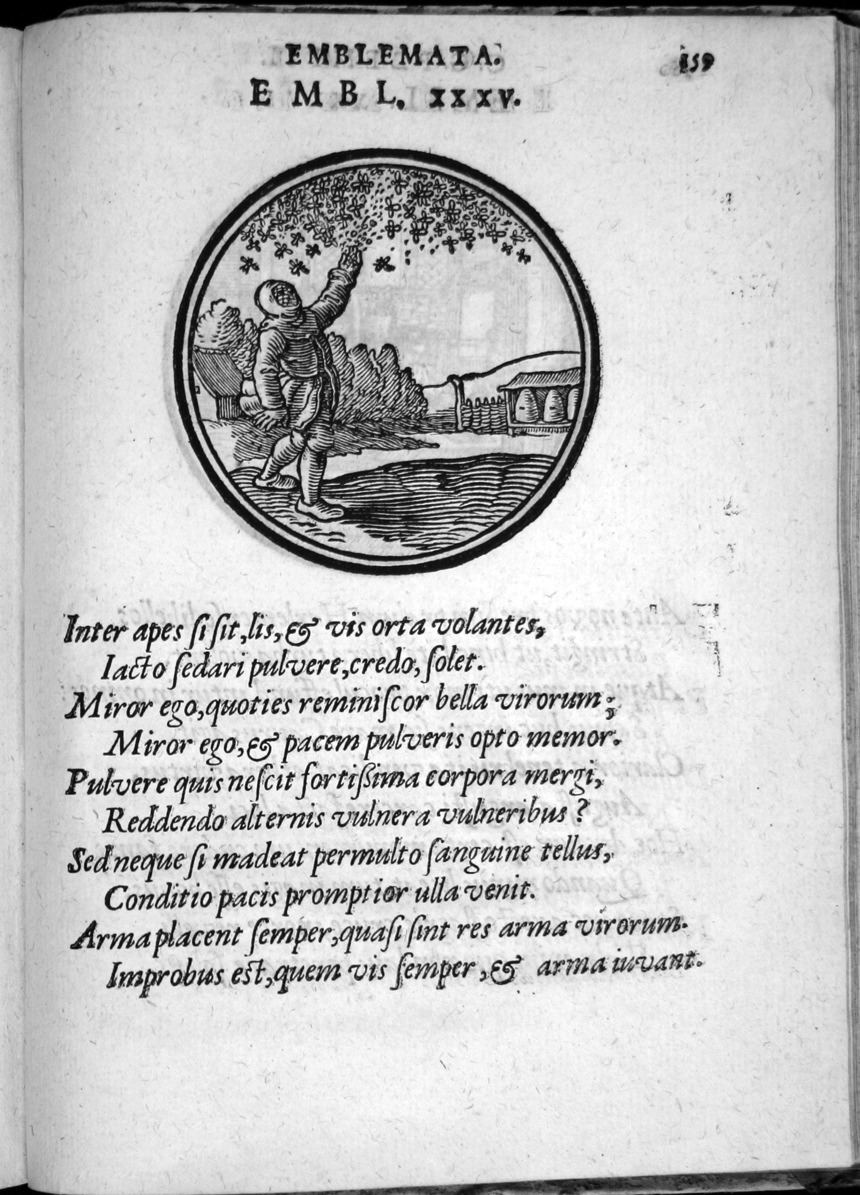 EMBLEMATA.
159
EMBL. XXXV.
Inter apes ſi ſit, lis, & vis orta volantes,
Iacto ſedari pulvere, credo, ſolet.
Miror ego, quoties reminiſcor bella virorum;
Miror ego, & pacem pulveris opto memor.
Pulvere quis neſcit fortiſsima corpora mergi,
Reddendo alternis vulnera vulneribus?
Sed neque ſi madeat permulto ſanguine tellus,
Conditio pacis promptior ulla venit.
Arma placent ſemper, quaſi ſint res arma virorum.
Improbus eſt, quem vis ſemper, & arma iuvant.